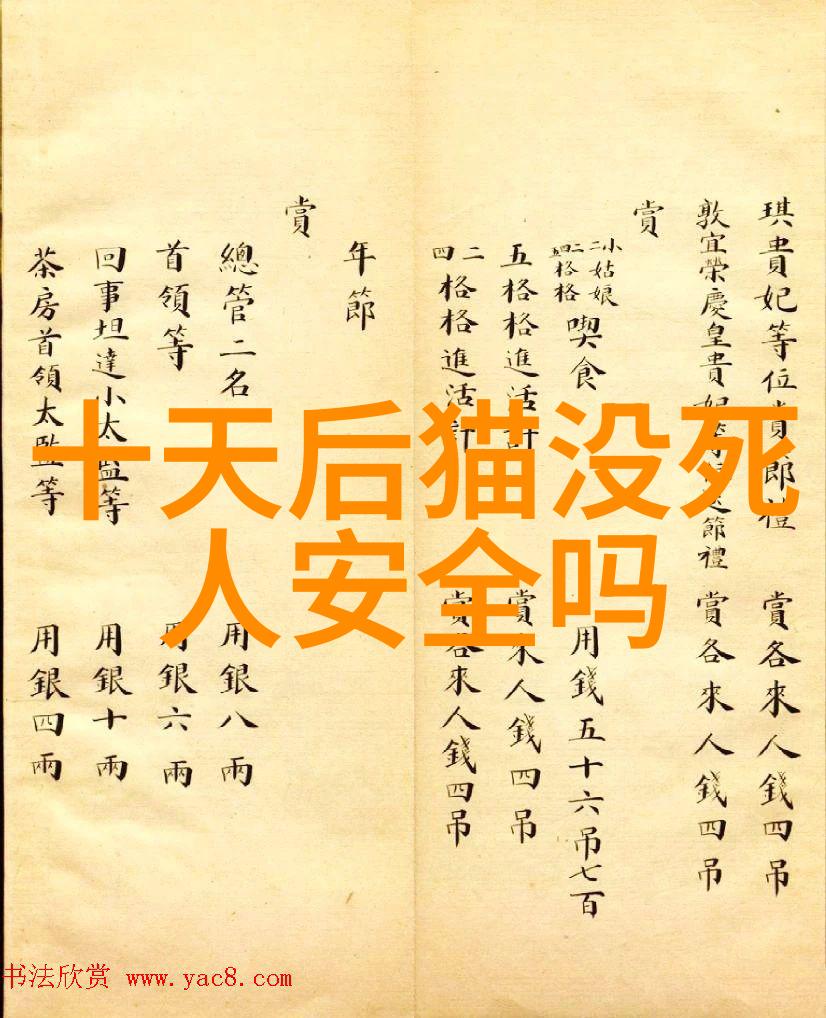 琪貴妃等位貴郎禮 賞各來人錢四吊
敦宜榮慶皇貴妃等位送節禮 賞各來人錢四吊
賞
小姑娘
二二格格
四格格
喫食 用錢五十六吊七百
五格格進活計 賞來人錢四吊
二
四格格進活計 賞各來人錢四吊
年節
賞
總管二名 用銀八兩
首領等 用銀六兩
回事坦達小太監等 用銀十兩
茶房首領太監等 用銀四兩
十天后猫没死
人安全吗
书法欣赏 www.yac8.com